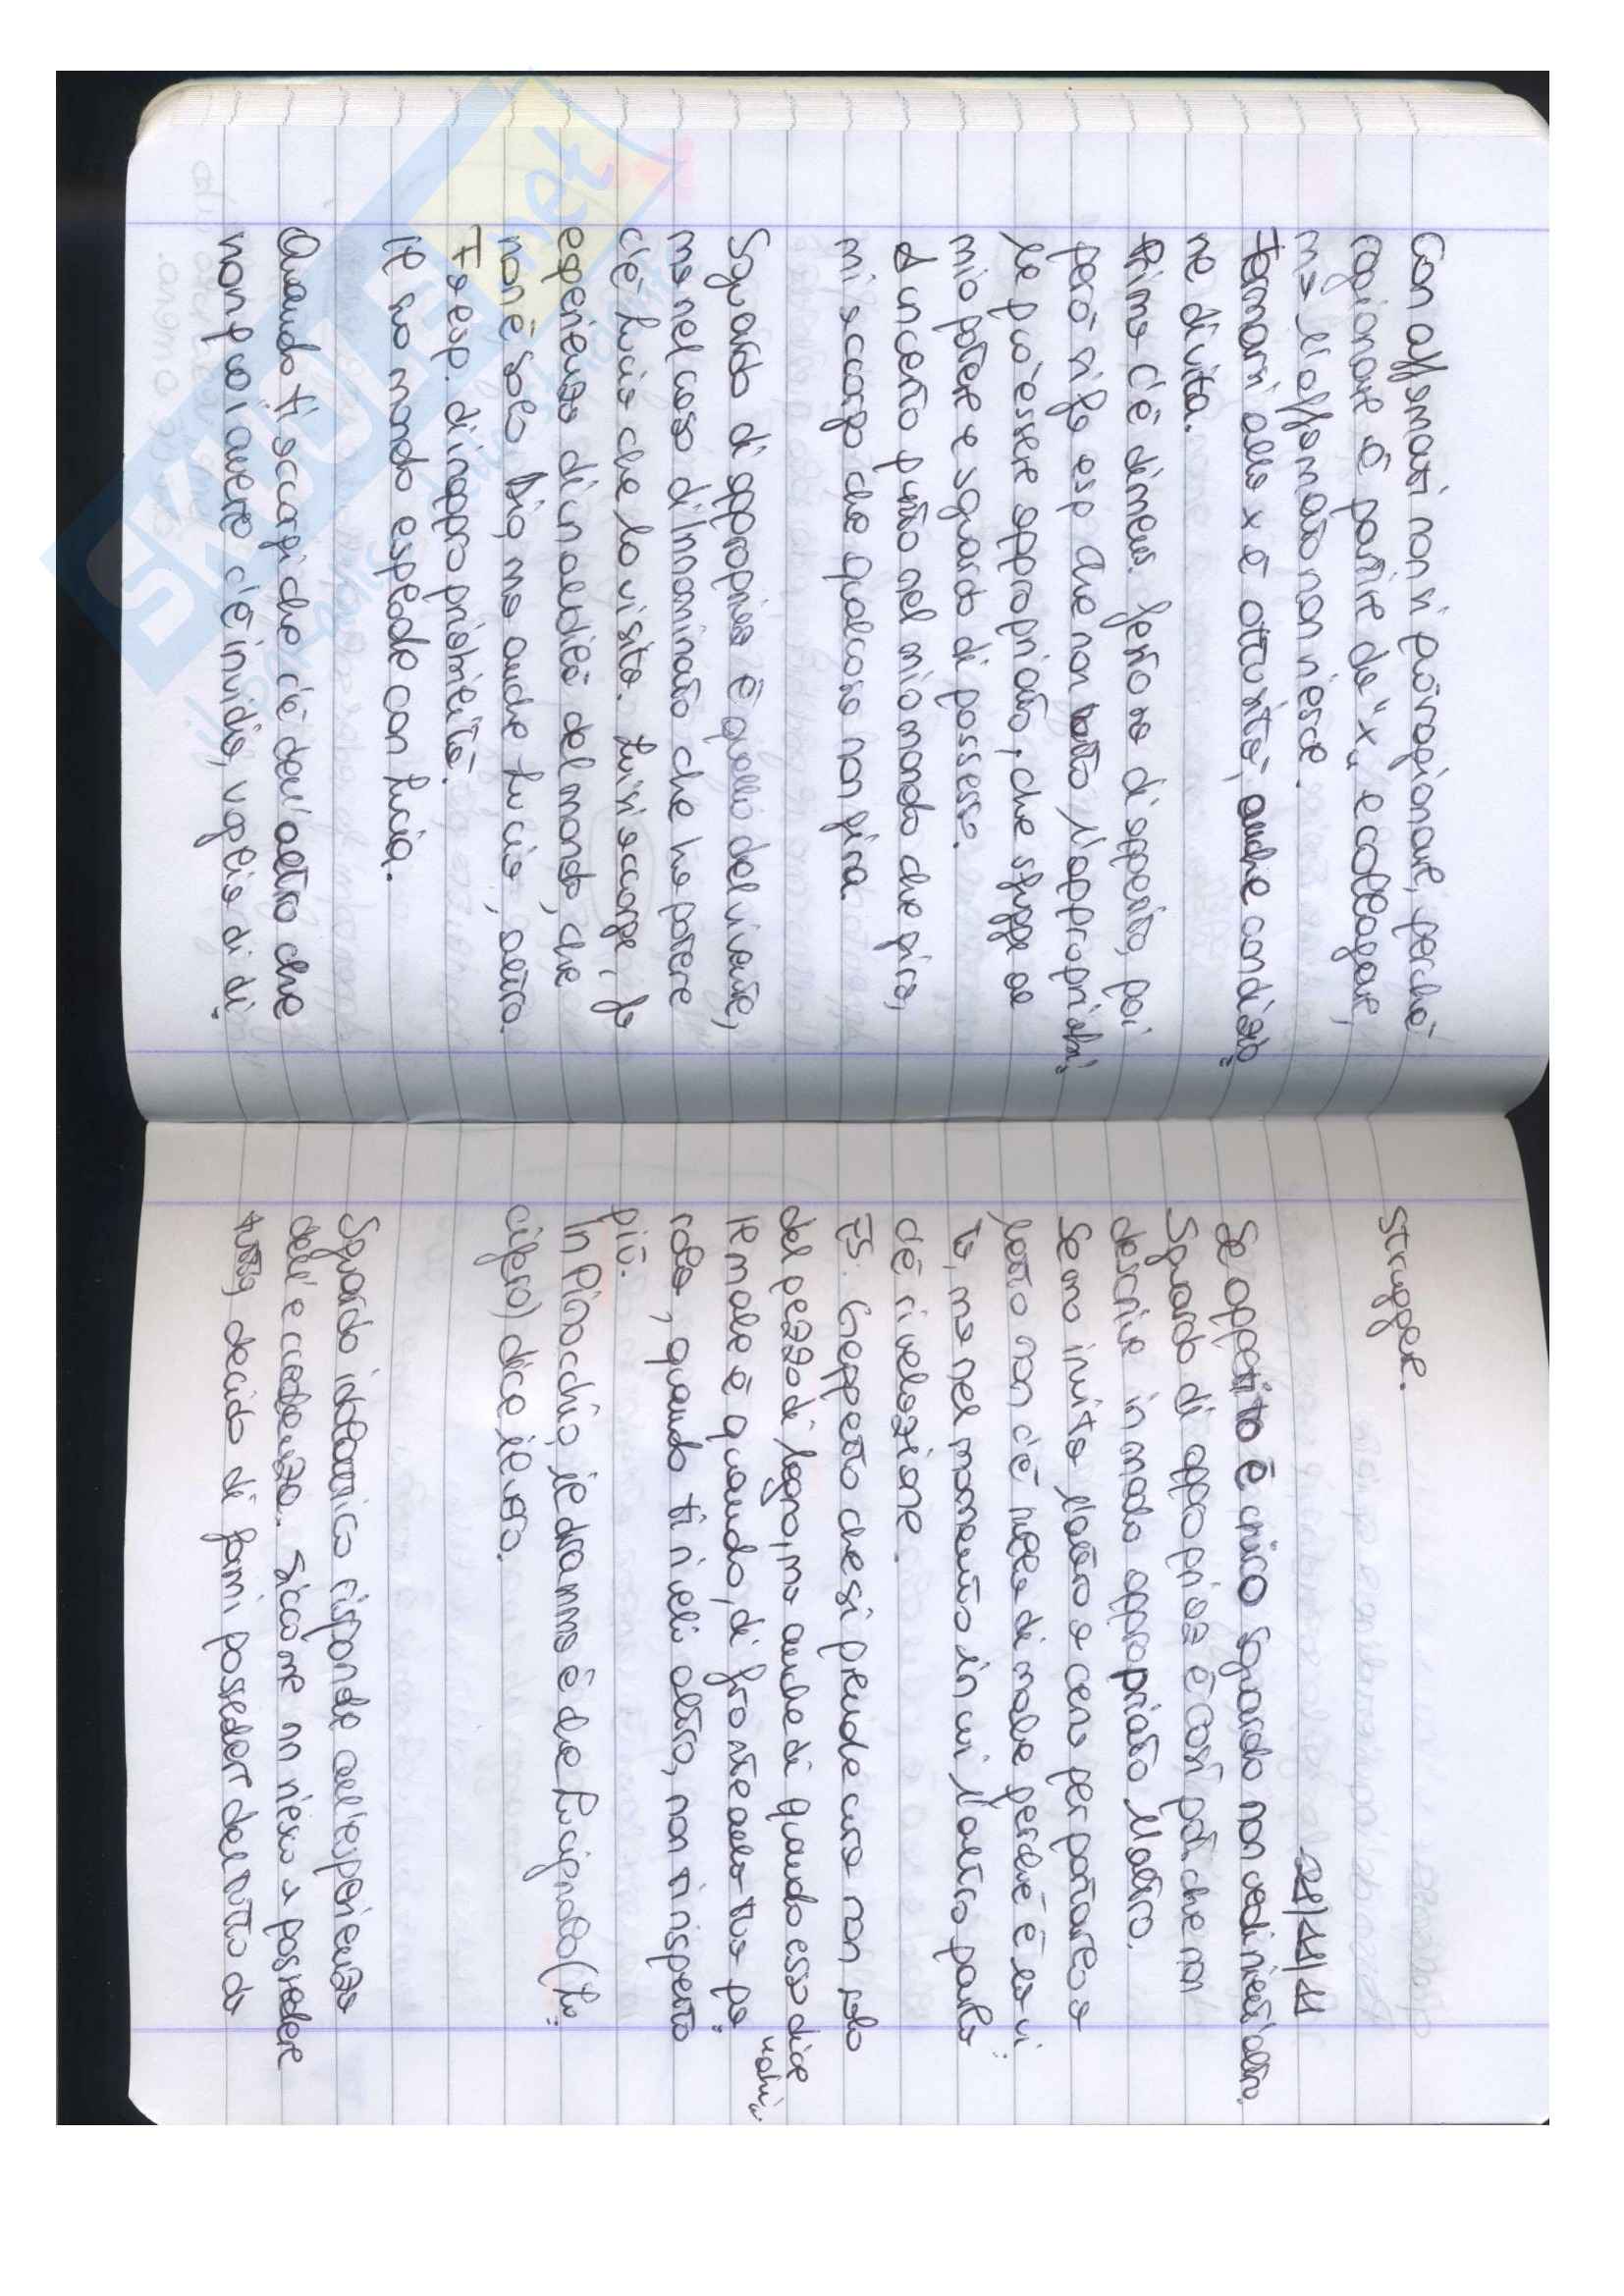 Con affamati non si può ragionare, perché
ragionare è partire da "x" e collegare,
ma l'affamato non riesce.
Fermarsi alla x è ottusità, anche condizio=
ne di vita.
Prima c'è dimens. feriva di appetito, poi
però si fa esp che non tutto l'appropriabi=
le può essere appropriato, che sfugge al
mio potere e sguardo di possesso.
A un certo punto nel mio mondo che gira,
mi accorgo che qualcosa non gira.
Sguardo di appropriaz è quello del vivente,
ma nel caso di Innominato che ha potere
c'è Lucia che lo visita. Lui si accorge, fa
esperienza di un aldilà del mondo, che
non è solo Dio, ma anche Lucia, altro.
Fa esp. di inappropriabilità.
Il suo mondo esplode con Lucia.
Quando ti accorgi che c'è dell'altro che
non puoi avere c'è invidia, voglia di di=
struggere.
21/11/11
Se appetito è unico sguardo non vedi nient'altro.
Sguardo di appropriaz è così poi che non
descrive in modo appropriato l'altro.
Se no invito l'altro a cena per portarlo a
letto non c'è nulla di male perché è la vi=
ta, ma nel momento in cui l'altro parla
c'è rivelazione.
ES: Geppetto che si prende cura non solo
del pezzo di legno, ma anche di quando esso dice
"ahi"
Il male è quando, di fronte alla tua pa=
rola, quando ti riveli altro, non si rispetta
più.
In Pinocchio, il dramma è che Lucignolo (Lu=
cifero) dice il vero.
Sguardo idolatrico risponde all'esperienza
dell'eccedenza. Siccome nn riesco a possedere
tutto, decido di farmi possedere del tutto da